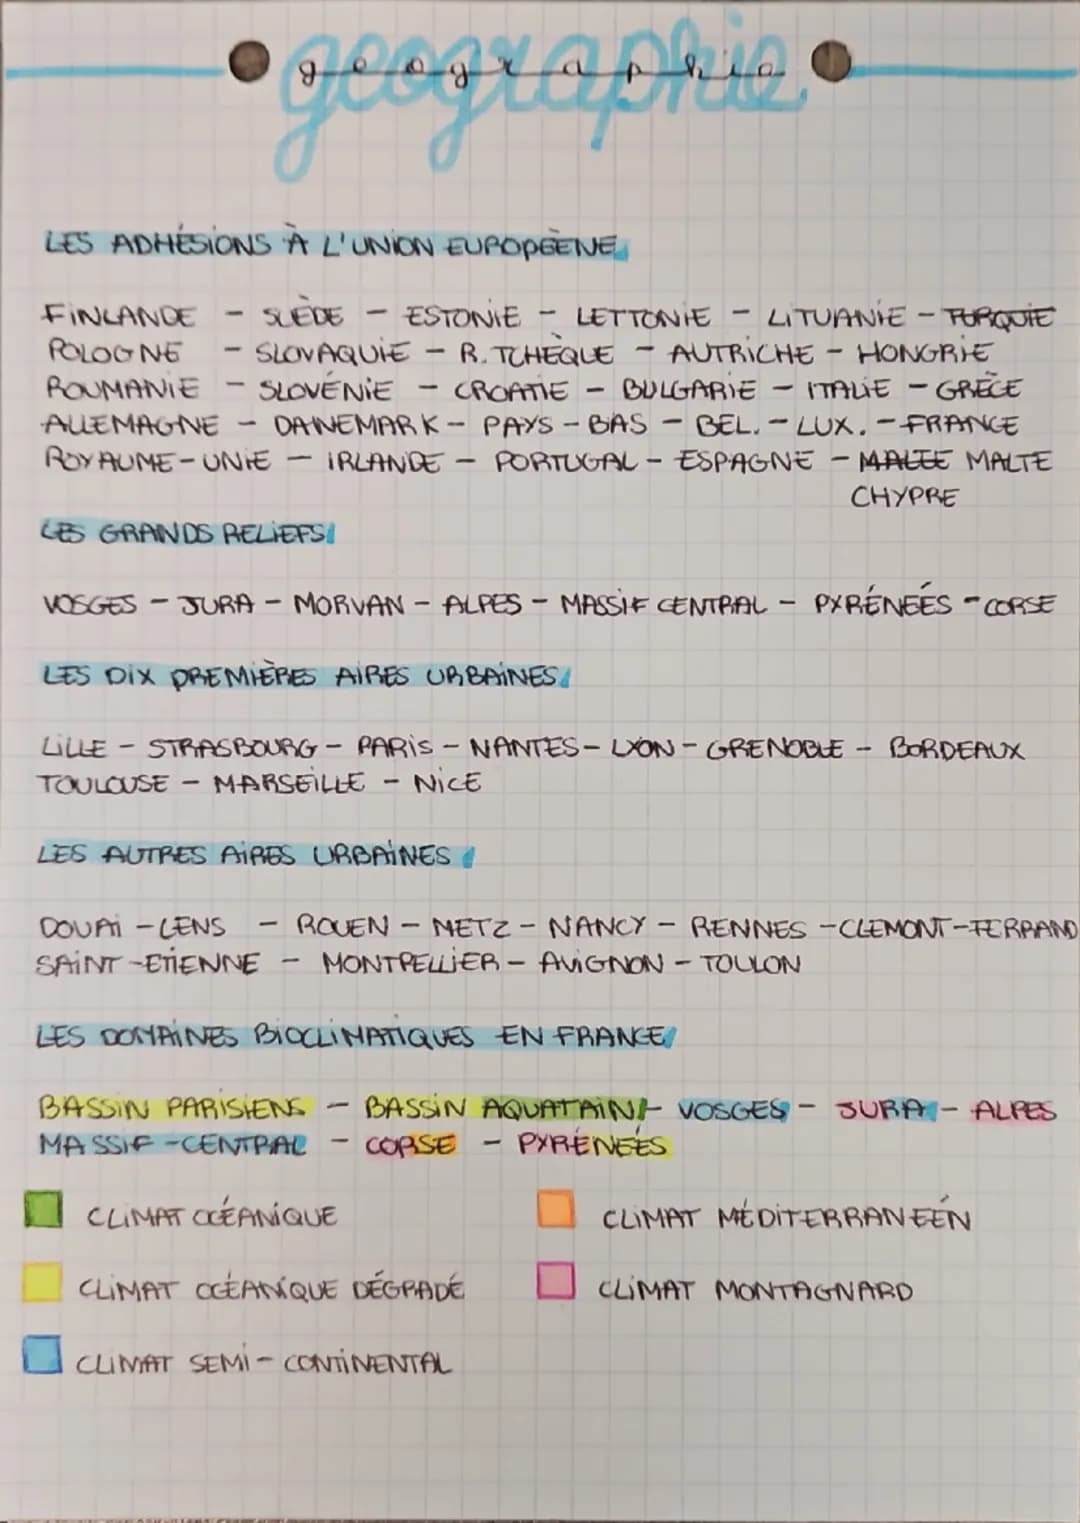 geographie
geographie
LES ADHÉSIONS À L'UNION EUROPÉÈNE
FINLANDE - SUÈDE - ESTONIE - LETTONIE - LITUANIE - TURQUIE
POLOGNE - SLOVAQUIE - R. TCHÈQUE - AUTRICHE - HONGRIE
ROUMANIE - SLOVÉNIE - CROATIE - BULGARIE - ITALIE - GRÈCE
ALLEMAGNE - DANEMARK - PAYS-BAS - BEL. - LUX. - FRANCE
ROYAUME-UNIE - IRLANDE - PORTUGAL - ESPAGNE - MALTE MALTE
CHYPRE
LES GRANDS RELIEFS
VOSGES - JURA - MORVAN - ALPES - MASSIF CENTRAL - PYRÉNEÉS - CORSE
LES DIX PREMIÈRES AIRES URBAINES
LILLE - STRASBOURG - PARIS - NANTES - LYON - GRENOBLE - BORDEAUX
TOULOUSE - MARSEILLE - NICE
LES AUTRES AIRES URBAINES
DOUAI - LENS - ROUEN - METZ - NANCY - RENNES - CLEMONT-FERRAND
SAINT-ETIENNE - MONTPELLIER - AVIGNON - TOULON
LES DOMAINES BIOCLIMATIQUES EN FRANCE
BASSIN PARISIENS - BASSIN AQUATAIN - VOSGES - JURA - ALPES
MASSIF-CENTRAL - CORSE - PYRÉNEÉS
CLIMAT OCÉANIQUE
CLIMAT MÉDITERRANEÉN
CLIMAT OCÉANIQUE DÉGRADÉ
CLIMAT MONTAGNARD
CLIMAT SEMI-CONTINENTAL